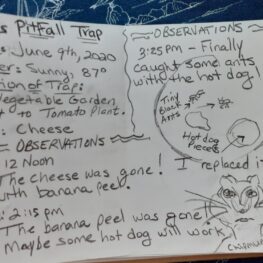 s PitFall Trap
s: June 9th, 2020
er: Sunny, 87°
ion of Trap:
Vegetable Garden,
to Tomato Plant.
: Cheese
OBSERVATIONS
12 Noon
The cheese was gone!
with banana peel.
: 2:15 pm
The banana peel was gone!
Maybe some hot dog will work.
OBSERVATIONS
3:25 pm - Finally
caught some ants
with the hot dog!
Tiny
Black
Ants
Hot dog
Piece
I replaced it